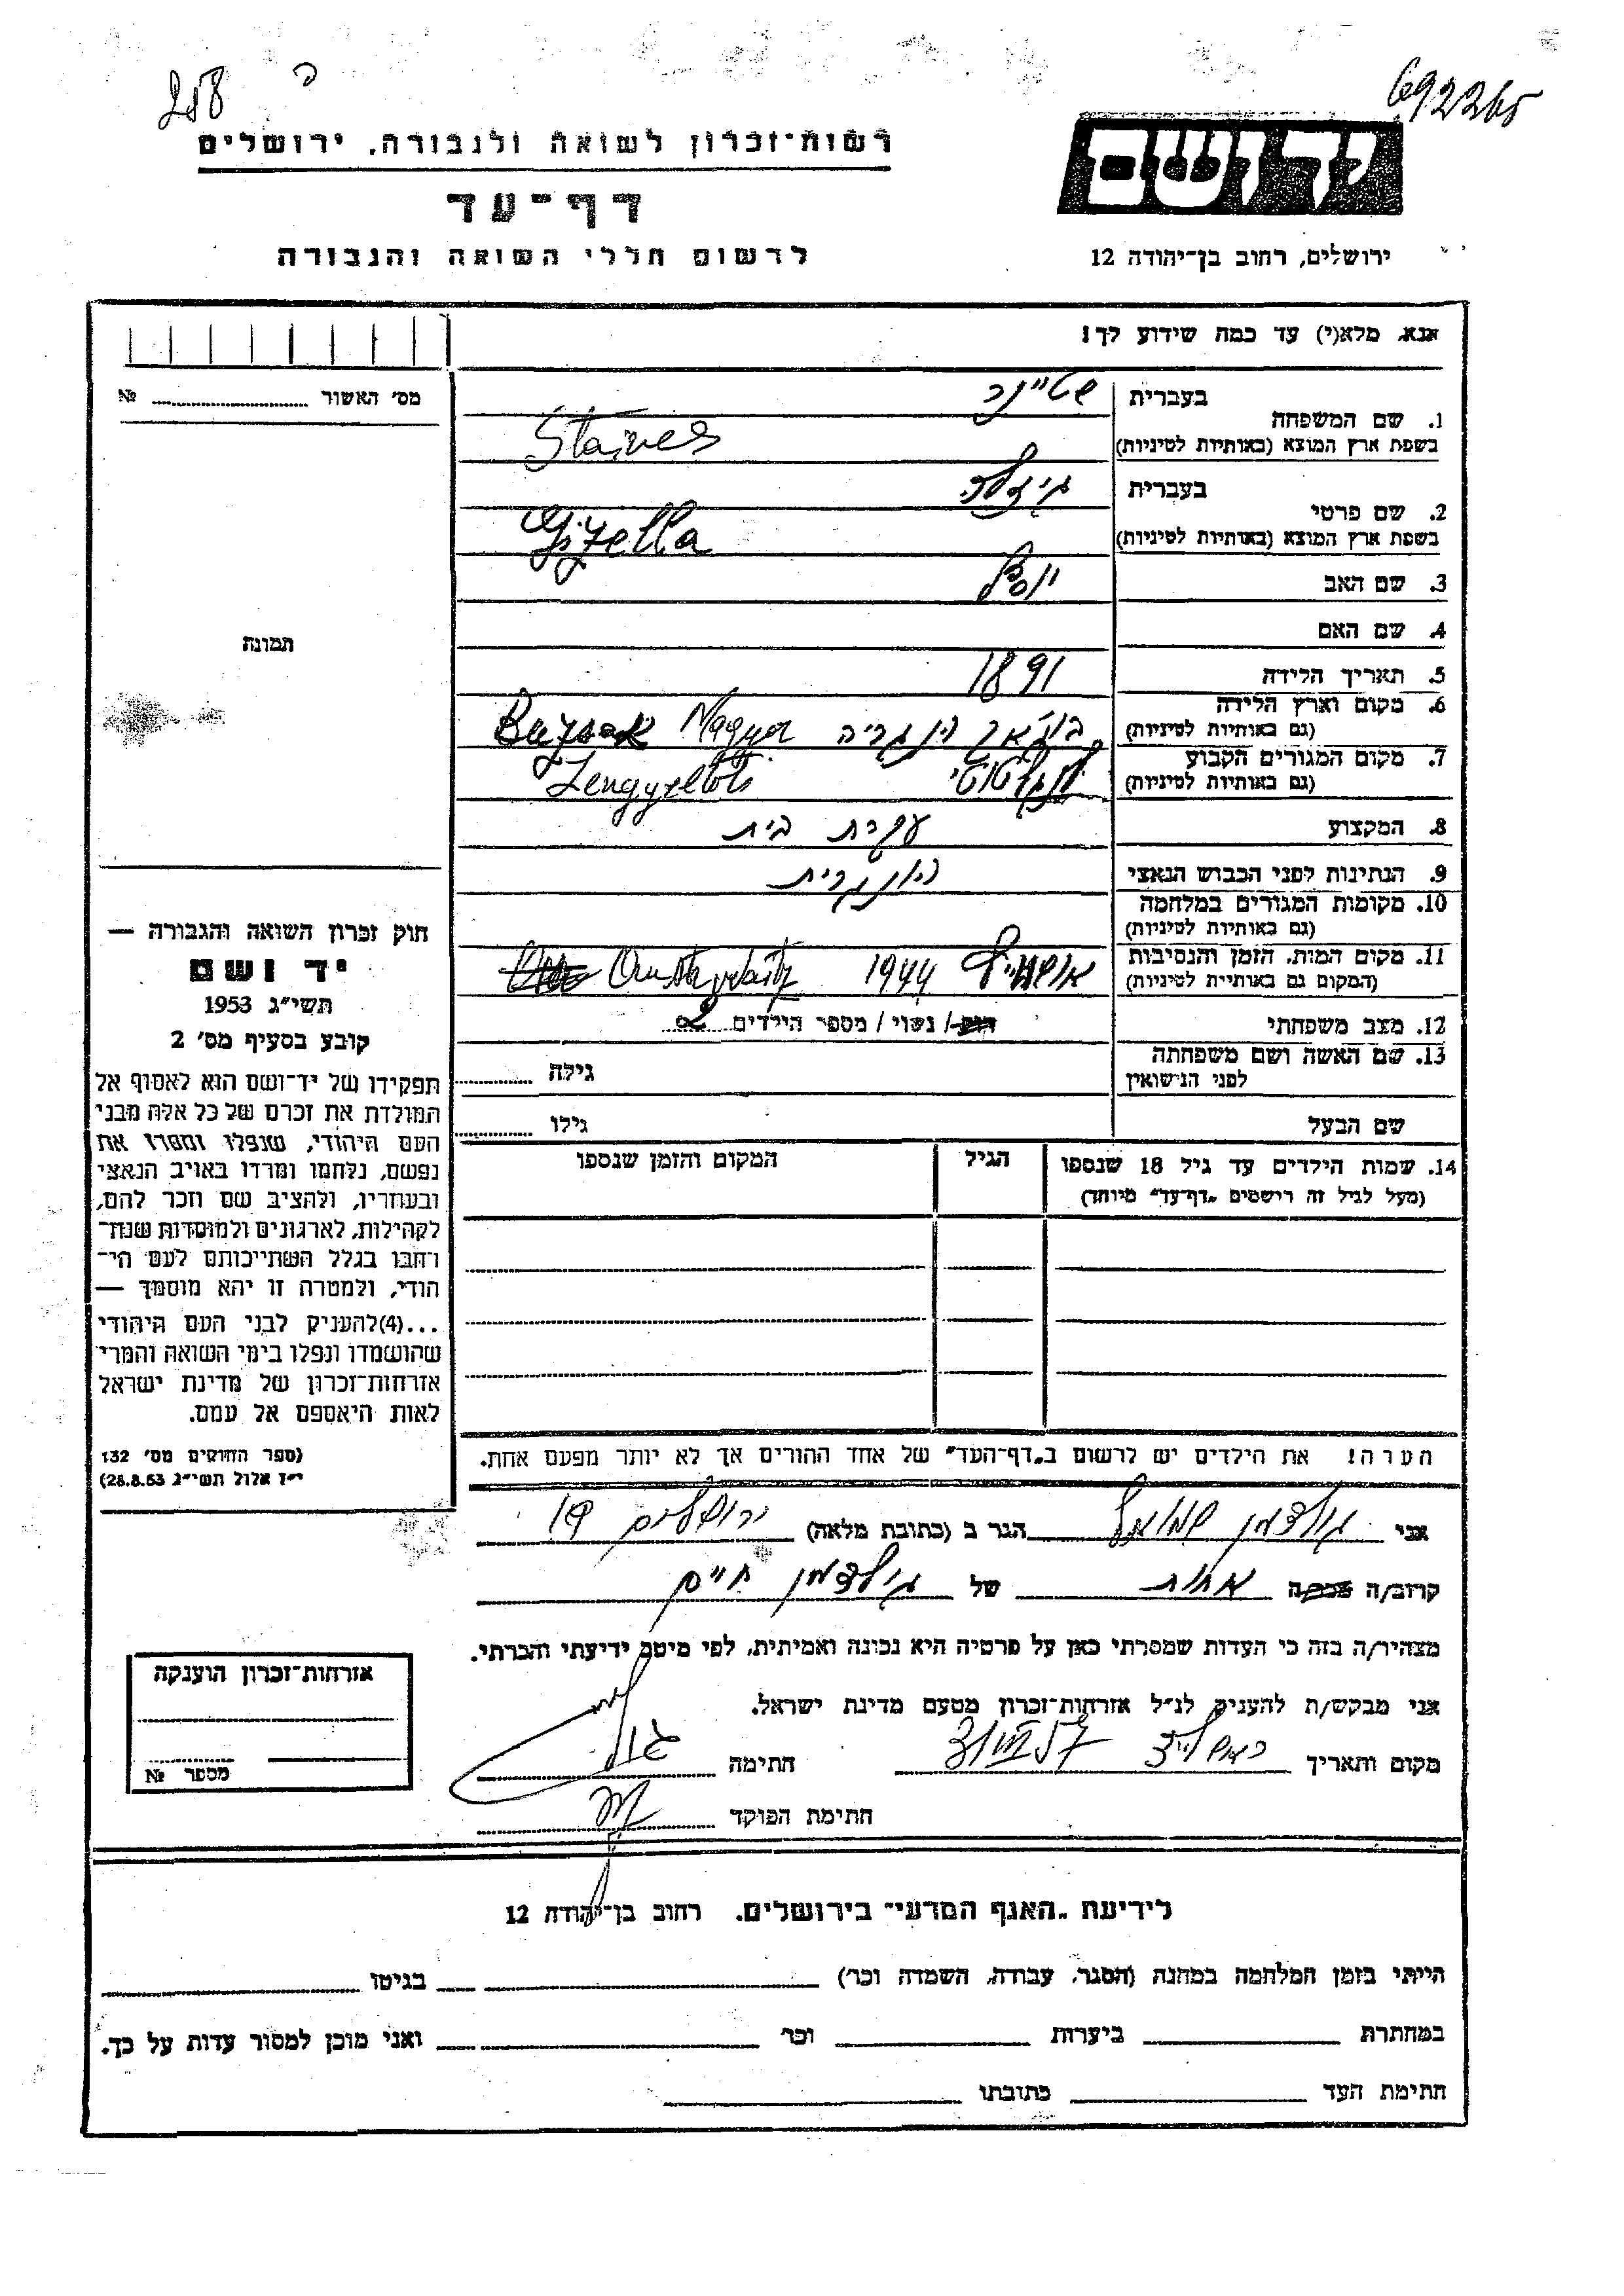 692265
258 ה
יד ושם
רשות-זכרון לשואה ולגבורה, ירושלים
דף-עד
לרשום חללי השואה והגבורה
ירושלים, רחוב בן-יהודה 12
אנא, מלא(י) עד כמה שידוע לך!
מס׳ האשור № 
תמונה
1. שם המשפחה בעברית שטיינר
בשפת ארץ המוצא (באותיות לטיניות) Stainer
2. שם פרטי בעברית גיזלה
בשפת ארץ המוצא (באותיות לטיניות) Gizella
3. שם האב יוסף
4. שם האם
5. תאריך הלידה 1891
6. מקום וארץ הלידה
(גם באותיות לטיניות) הונגריה Magyar Buzsak
7. מקום המגורים הקבוע
(גם באותיות לטיניות) Lengyeltóti
8. המקצוע עקרת בית
9. הנתינות לפני הכבוש הנאצי הונגרית
10. מקומות המגורים במלחמה
(גם באותיות לטיניות)
11. מקום המות, הזמן והנסיבות
(המקום גם באותיות לטיניות) אושוויץ 1944
12. מצב משפחתי רווק/ נשוי / מספר הילדים 2
13. שם האשה ושם משפחתה
לפני הנישואין גילה
שם הבעל גילו
14. שמות הילדים עד גיל 18 שנספו
(מעל לגיל זה רישמים „דף-עד” מיוחד)
הגיל
המקום והזמן שנספו
חוק זכרון השואה והגבורה —
יד ושם
תשי״ג 1953
קובע בסעיף מס׳ 2
תפקידו של יד-ושם הוא לאסוף אל
המולדת את זכרם של כל אלה מבני
העם היהודי, שנפלו ומסרו את
נפשם, נלחמו ומרדו באויב הנאצי
ובעוזריו, ולהציב שם וזכר להם,
לקהילות, לארגונים ולמוסדות שנח-
רבו בגלל השתייכותם לעם הי-
הודי, ולמטרה זו יהא מוסמך —
...(4)להעניק לבני העם היהודי
שהושמדו ונפלו בימי השואה והמרי
אזרחות-זכרון של מדינת ישראל
לאות היאספם אל עמם.
(ספר החוקים מס׳ 132
י״ז אלול תשי״ג 28.8.53)
הערה! את הילדים יש לרשום ב„דף-העד” של אחד ההורים אך לא יותר מפעם אחת.
אני גולדמן שמואל הגר ב (כתובת מלאה) ירושלים
קרוב/ה אחות של גולדמן חיים
מצהיר/ה בזה כי העדות שמסרתי כאן על פרטיה היא נכונה ואמיתית, לפי מיטב ידיעתי והכרתי.
אני מבקש/ת להעניק לנ״ל אזרחות-זכרון מטעם מדינת ישראל.
מקום ותאריך חתימה
חתימת הפוקד
אזרחות-זכרון הוענקה
מספר №
לידיעת „האגף המדעי” בירושלים. רחוב בן-יהודה 12
הייתי בזמן המלחמה במחנה (הסגר, עבודה, השמדה וכו׳) בגיטו
במחתרת ביערות וכו׳ ואני מוכן למסור עדות על כך.
חתימת העד כתובתו